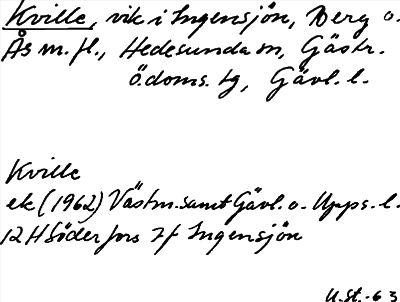 Kville, vik i Ingensjön, Berg o.
Ås m. fl., Hedesunda sn, Gästr.
ödoms. tg, Gävl. l.
Kville
ek (1962) Västm. samt Gävl. o. Upps. l.
12 H Söderfors 7f Ingensjön
U.St.-63